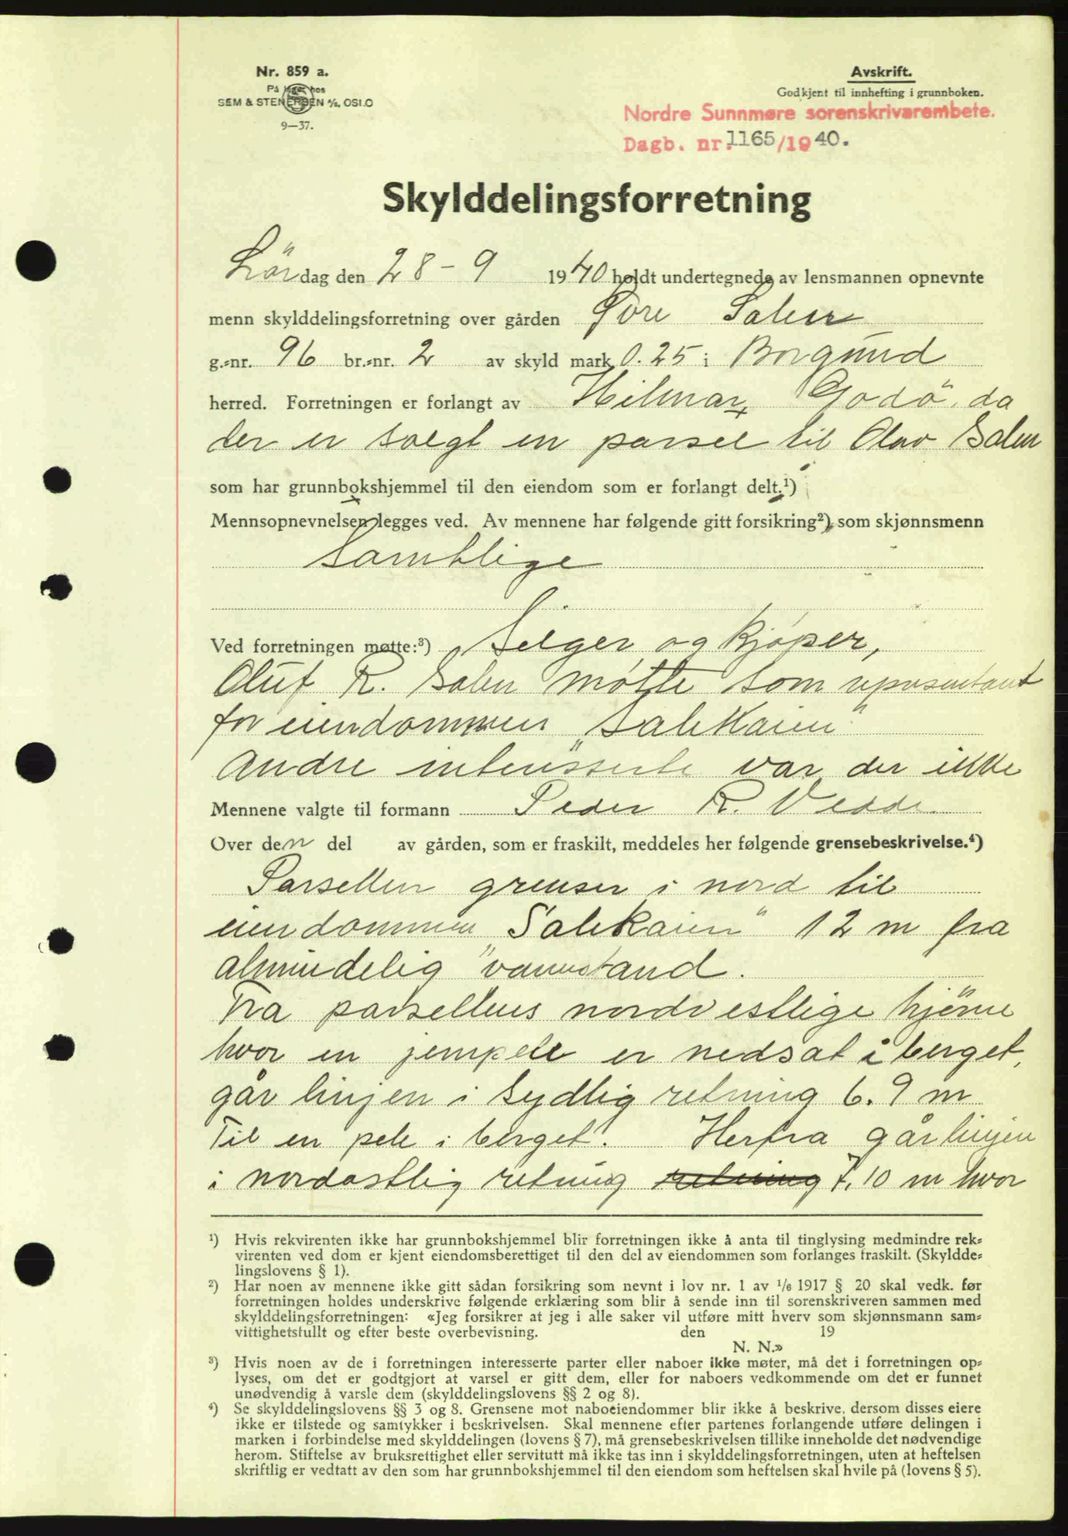 Nr. 859 a.
På lager hos
SEM & STENERSEN A/S, OSLO
9—37.
Avskrift.
Godkjent til innhefting i grunnboken.
Nordre Sunnmøre sorenskrivarembete.
Dagb. nr. 1165/1940.
Skylddelingsforretning
Lördag den 28-9 1940 holdt undertegnede av lensmannen opnevnte
menn skylddelingsforretning over gården Øvre Salen
g.-nr. 96 br.-nr. 2 av skyld mark 0.25 i Borgund
herred. Forretningen er forlangt av Hilmar Godö, da
der er solgt en parsel til Olav Salen
som har grunnbokshjemmel til den eiendom som er forlangt delt.¹)
Mennsopnevnelsen legges ved. Av mennene har følgende gitt forsikring²) som skjønnsmenn
Samtlige
Ved forretningen møtte:³) Selger og kjøper,
Oluf R. Salen møtte som representant
for eiendommen "Salekaien"
Andre interesserte var der ikke
Mennene valgte til formann Peder R. Vedde
Over den del av gården, som er fraskilt, meddeles her følgende grensebeskrivelse.⁴)
Parsellen grenser i nord til
eiendommen "Salekaien" 12 m fra
almindelig vannstand.
Fra parsellens nordvestlige hjörne
hvor en jernpele er nedsat i berget,
går linjen i sydlig retning 6.9 m
til en pele i berget. Herfra går linjen
i nordøstlig retning retning 7.10 m hvor
¹) Hvis rekvirenten ikke har grunnbokshjemmel blir forretningen ikke å anta til tinglysing medmindre rek-
virenten ved dom er kjent eiendomsberettiget til den del av eiendommen som forlanges fraskilt. (Skyldde-
lingslovens § 1).
²) Har noen av mennene ikke gitt sådan forsikring som nevnt i lov nr. 1 av ¹/₆ 1917 § 20 skal vedk. før
forretningen holdes underskrive følgende erklæring som blir å sende inn til sorenskriveren sammen med
skylddelingsforretningen: «Jeg forsikrer at jeg i alle saker vil utføre mitt hverv som skjønnsmann sam-
vittighetsfullt og efter beste overbevisning. den 19
N. N.»
³) Hvis noen av de i forretningen interesserte parter eller naboer ikke møter, må det i forretningen op-
lyses, om det er godtgjort at varsel er gitt dem, eller for naboers vedkommende om det er funnet
unødvendig å varsle dem (skylddelingslovens §§ 2 og 8).
⁴) Se skylddelingslovens §§ 3 og 8. Grensene mot naboeiendommer blir ikke å beskrive, dersom disses eiere
ikke er tilstede og samtykker i beskrivelsen. Skal mennene efter partenes forlangende utføre delingen i
marken i forbindelse med skylddelingen (lovens § 7), må grensebeskrivelsen tillike inneholde det nødvendige
herom. Stiftelse av bruksrettighet eller servitutt må ikke tas inn i skylddelingsforretningen, uten at heftelsen
skriftlig er vedtatt av den som har grunnbokshjemmel til den eiendom som heftelsen skal hvile på (lovens § 5).